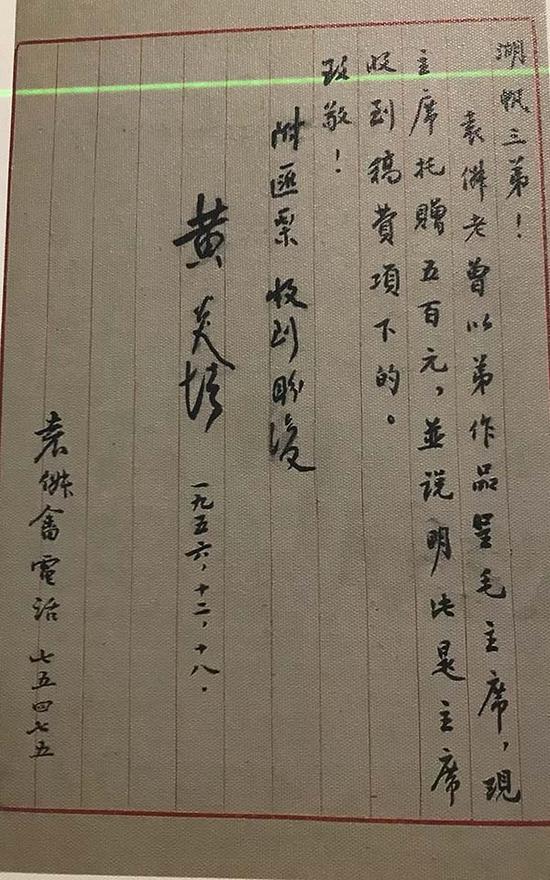 湖帆三弟！
袁傑老曾以弟作品呈毛主席，現
主席托贈五百元，並説明此是主席
收到稿費項下的。
致敬！
附匯票 收到盼復
黄炎培 一九五六，十二，十八．
袁傑畲電話 七五四七五